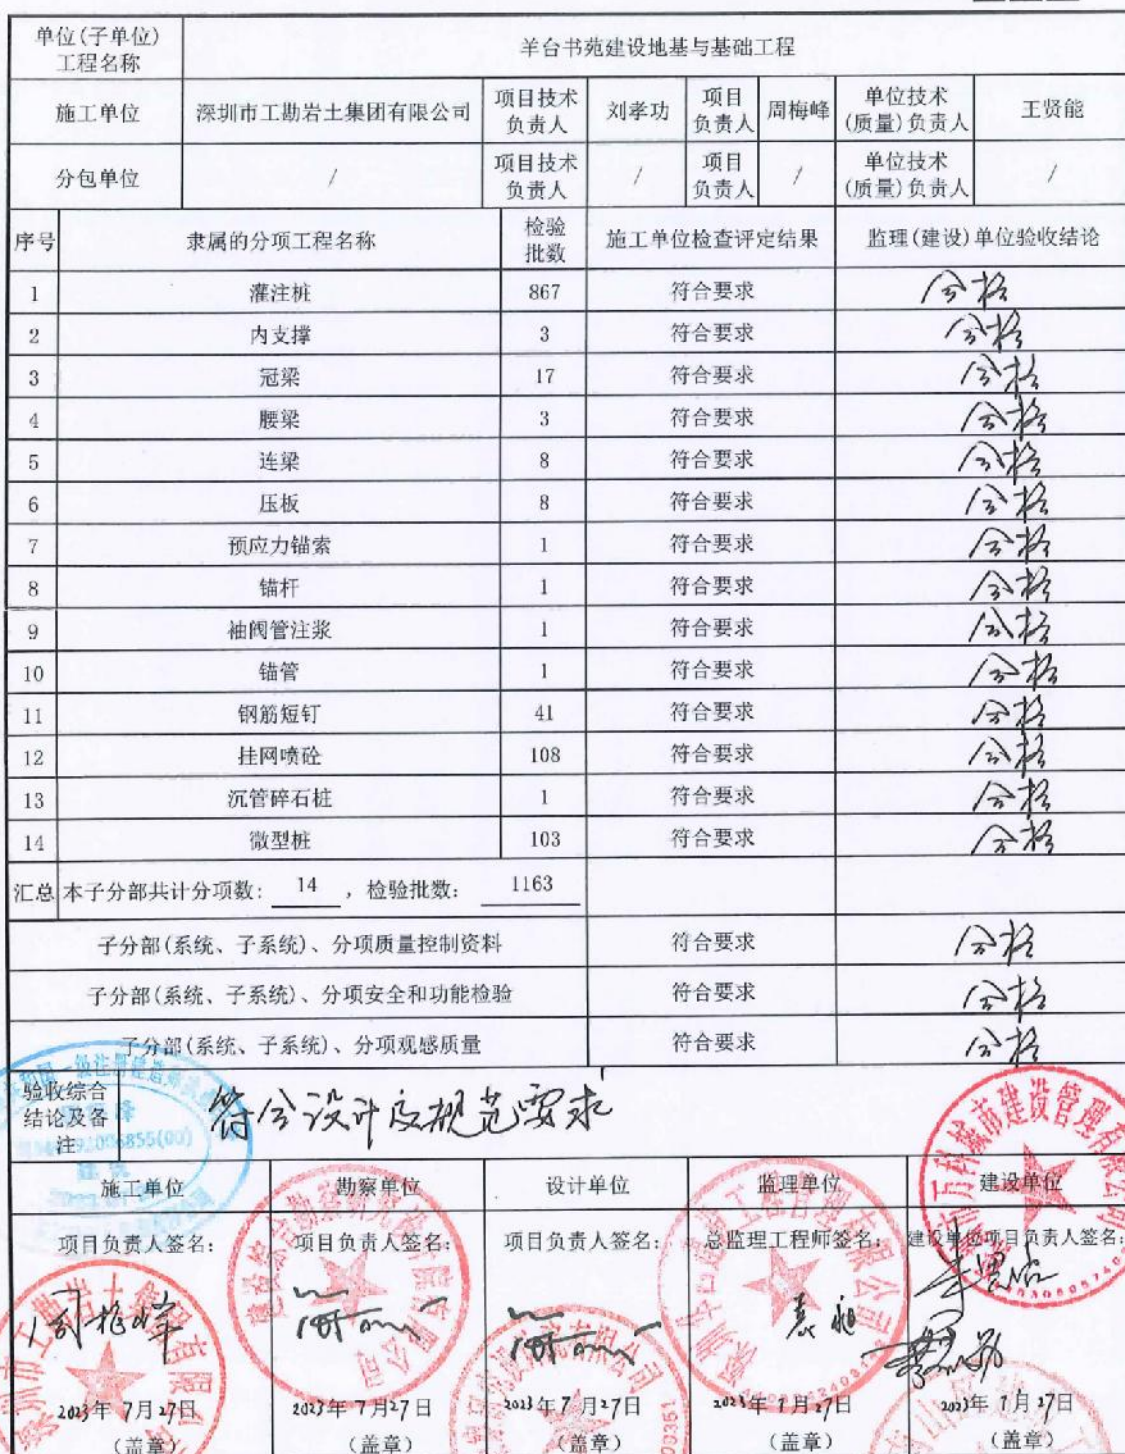 单位(子单位)
工程名称
羊台书苑建设地基与基础工程
施工单位
深圳市工勘岩土集团有限公司
项目技术
负责人
刘孝功
项目
负责人
周梅峰
单位技术
(质量)负责人
王贤能
分包单位
/
项目技术
负责人
/
项目
负责人
/
单位技术
(质量)负责人
/
序号 隶属的分项工程名称 检验
批数 施工单位检查评定结果 监理(建设)单位验收结论
1 灌注桩 867 符合要求 合格
2 内支撑 3 符合要求 合格
3 冠梁 17 符合要求 合格
4 腰梁 3 符合要求 合格
5 连梁 8 符合要求 合格
6 压板 8 符合要求 合格
7 预应力锚索 1 符合要求 合格
8 锚杆 1 符合要求 合格
9 袖阀管注浆 1 符合要求 合格
10 锚管 1 符合要求 合格
11 钢筋短钉 41 符合要求 合格
12 挂网喷砼 108 符合要求 合格
13 沉管碎石桩 1 符合要求 合格
14 微型桩 103 符合要求 合格
汇总 本子分部共计分项数: 14 ，检验批数: 1163
子分部(系统、子系统)、分项质量控制资料 符合要求 合格
子分部(系统、子系统)、分项安全和功能检验 符合要求 合格
子分部(系统、子系统)、分项观感质量 符合要求 合格
验收综合
结论及备
注
符合设计及规范要求
施工单位 勘察单位 设计单位 监理单位 建设单位
项目负责人签名: 项目负责人签名: 项目负责人签名: 总监理工程师签名: 建设单位项目负责人签名:
周梅峰
2023年7月27日 2023年7月27日 2023年7月27日 2023年7月27日 2023年7月27日
(盖章) (盖章) (盖章) (盖章) (盖章)